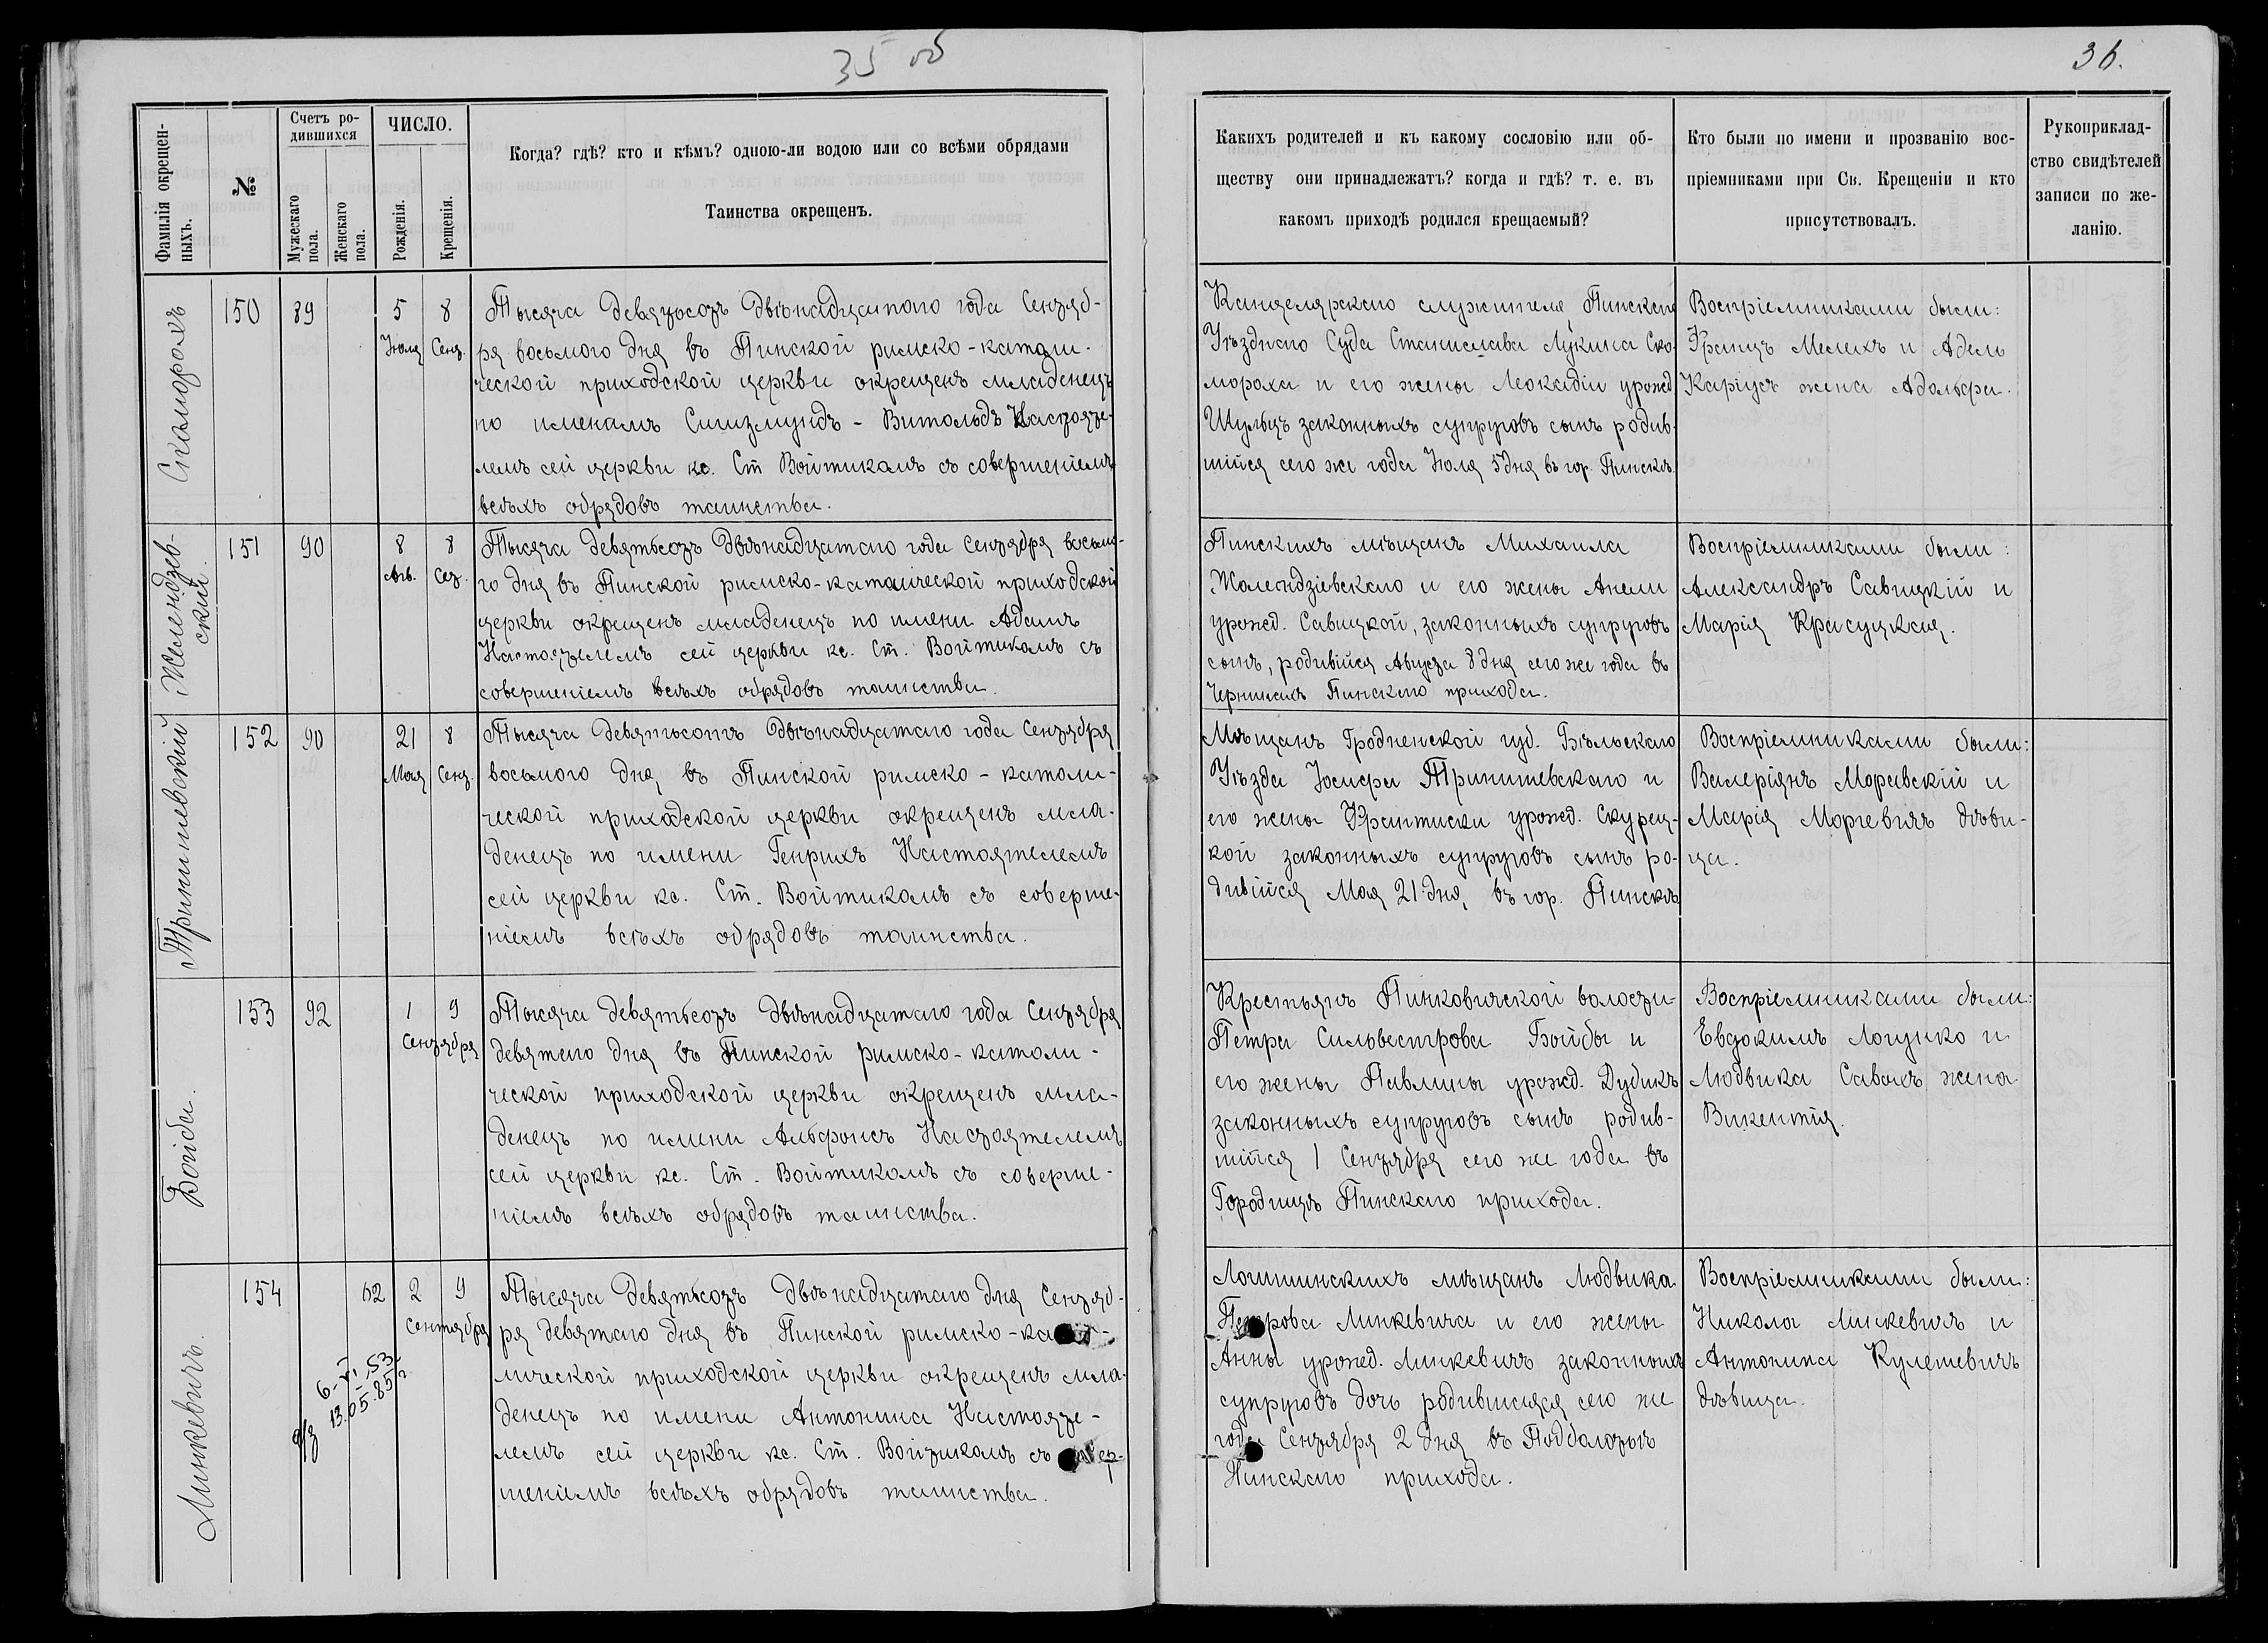 35 об
36.
Фамилія окрещен-
ныхъ.
№
Счетъ ро-
дившихся
Мужескаго
пола.
Женскаго
пола.
ЧИСЛО.
Рожденія.
Крещенія.
Когда? гдѣ? кто и кѣмъ? одною-ли водою или со всѣми обрядами
Таинства окрещенъ.
Какихъ родителей и къ какому сословію или об-
ществу они принадлежатъ? когда и гдѣ? т. е. въ
какомъ приходѣ родился крещаемый?
Кто были по имени и прозванію вос-
пріемниками при Св. Крещеніи и кто
присутствовалъ.
Рукоприклад-
ство свидѣтелей
записи по же-
ланію.
Скаморохъ
150
89
5
Іюля
8
Сент.
Тысяча девятьсотъ двѣнадцатого года Сентяб-
ря восьмого дня въ Пинской римско-катали-
ческой приходской церкви окрещенъ младенецъ
по именамъ Сигизмундъ - Витольдъ Настояте-
лемъ сей церкви кс. Ст Войтикомъ съ совершеніемъ
всѣхъ обрядовъ таинства.
Канцелярскаго служителя Пинскаго
Уѣзднаго Суда Станислава Лукина Ско-
мороха и его жены Леокадіи урожд
Шульцъ законныхъ супруговъ сынъ родив-
шійся сего же года Іюля 5 дня въ гор. Пинскѣ.
Воспріемниками были:
Францъ Мелехъ и Адель
Каріусъ жена Адольфа.
Желендзев-
скій.
151
90
8
Авг.
8
Сет.
Тысяча девятьсотъ двѣнадцатаго года Сентября восьмо-
го дня въ Пинской римско-каталической приходской
церкви окрещенъ младенецъ по имени Адамъ
Настоятелемъ сей церкви кс. Ст. Войтикомъ съ
совершеніемъ всѣхъ обрядовъ таинства.
Пинскихъ мѣщанъ Михаила
Жолендзіевскаго и его жены Анели
урожд. Савицкой, законныхъ супруговъ
сынъ, родившійся Августа 8 дня сего же года въ
Пинскаго прихода.
Воспріемниками были:
Александръ Савицкій и
Марія Красуцкая.
Тринишевскій
152
90
21
Мая
8
Сент.
Тысяча девятьсотъ двѣнадцатаго года Сентября
восьмого дня въ Пинской римско-католи-
ческой приходской церкви окрещенъ мла-
денецъ по имени Генрихъ Настоятелемъ
сей церкви кс. Ст. Войтикомъ съ соверше-
ніемъ всѣхъ обрядовъ таинства.
Мѣщанъ Гродненской губ. Бѣльскаго
Уѣзда Іосифа Тринишевскаго и
его жены Франтиски урожд. Скурец-
кой законныхъ супруговъ сынъ ро-
дившійся Мая 21 дня, въ гор. Пинскѣ
Воспріемниками были:
Валеріянъ Моравскій и
Марія Моргевичъ дѣви-
ца.
Бойба.
153
92
1
9
Сентября
Тысяча девятьсотъ двѣнадцатаго года Сентября
девятаго дня въ Пинской римско-католи-
ческой приходской церкви окрещенъ мла-
денецъ по имени Альфонсъ Настоятелемъ
сей церкви кс. Ст. Войтикомъ съ соверше-
ніемъ всѣхъ обрядовъ таинства.
Крестьянъ Пинковичской волости
Петра Сильвестрова Бойбы и
его жены Павлины урожд. Дудикъ
законныхъ супруговъ сынъ родив-
шійся 1 Сентября сего же года въ
Городищѣ Пинскаго прихода.
Воспріемниками были:
Евдокимъ Логунко и
Людвика Савахъ жена
Викентія.
Минкевичъ
154
62
2
9
Сентября
6-VI-53
13.05.85 г.
Тысяча девятьсотъ двѣнадцатаго дня Сентяб-
ря девятаго дня въ Пинской римско-
лической приходской церкви окрещенъ мла-
денецъ по имени Антонина Настояте-
лемъ сей церкви кс. Ст. Войтикомъ съ
шеніемъ всѣхъ обрядовъ таинства.
Логишинскихъ мѣщанъ Людвика
Петрова Минкевича и его жены
Анны урожд. Минкевичъ законныхъ
супруговъ дочь родившаяся сего же
года Сентября 2 дня въ Подболотьѣ
Пинскаго прихода.
Воспріемниками были:
Никола Минкевичъ и
Антонина Кулешевичъ
дѣвица.